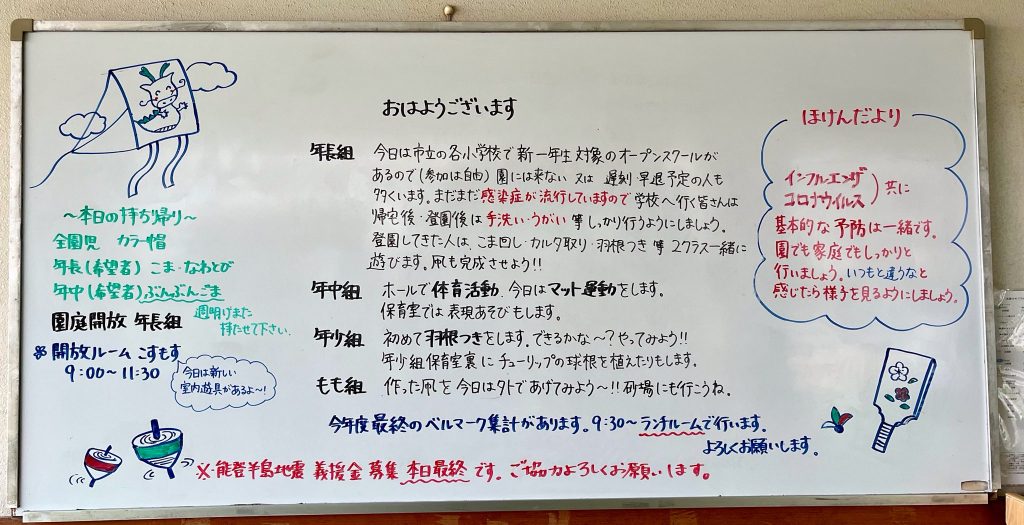 おはようございます
年長組 今日は市立の各小学校で新一年生対象のオープンスクールが
あるので(参加は自由)園には来ない又は 遅刻 早退予定の人も
多くいます。まだまだ感染症が流行していますので学校へ行く皆さんは
帰宅後・登園後は手洗い・うがい等しっかり行うようにしましょう。
登園してきた人は、こま回し・カルタ取り・羽根つき等 2クラス一緒に
遊びます。凧も完成させよう!!
年中組 ホールで体育活動、今日はマット運動をします。
保育室では表現あそびもします。
年少組 初めて羽根つきをします。できるかな〜?やってみよう!!
年少組保育室裏にチューリップの球根を植えたりもします。
もも組 作った凧を今日は外であげてみよう〜!!砂場にも行こうね。
今年度最終のベルマーク集計があります。9:30〜ランチルームで行います。
よろしくお願いします。
※能登半島地震 義援金 募集 本日最終です。ご協力よろしくお願いします。
〜本日の持ち帰り〜
全園児 カラー帽
年長(希望者)こま・なわとび
年中(希望者)ぶんぶんごま
週明けまた
持たせて下さい。
園庭開放 年長組
開放ルーム こすもす
9:00〜11:30
今日は新しい
室内遊具があるよ〜!
ほけんだより
インフルエンザ
コロナウイルス)共に
基本的な予防は一緒です。
園でも家庭でもしっかりと
行いましょう。いつもと違うなと
感じたら様子を見るようにしましょう。